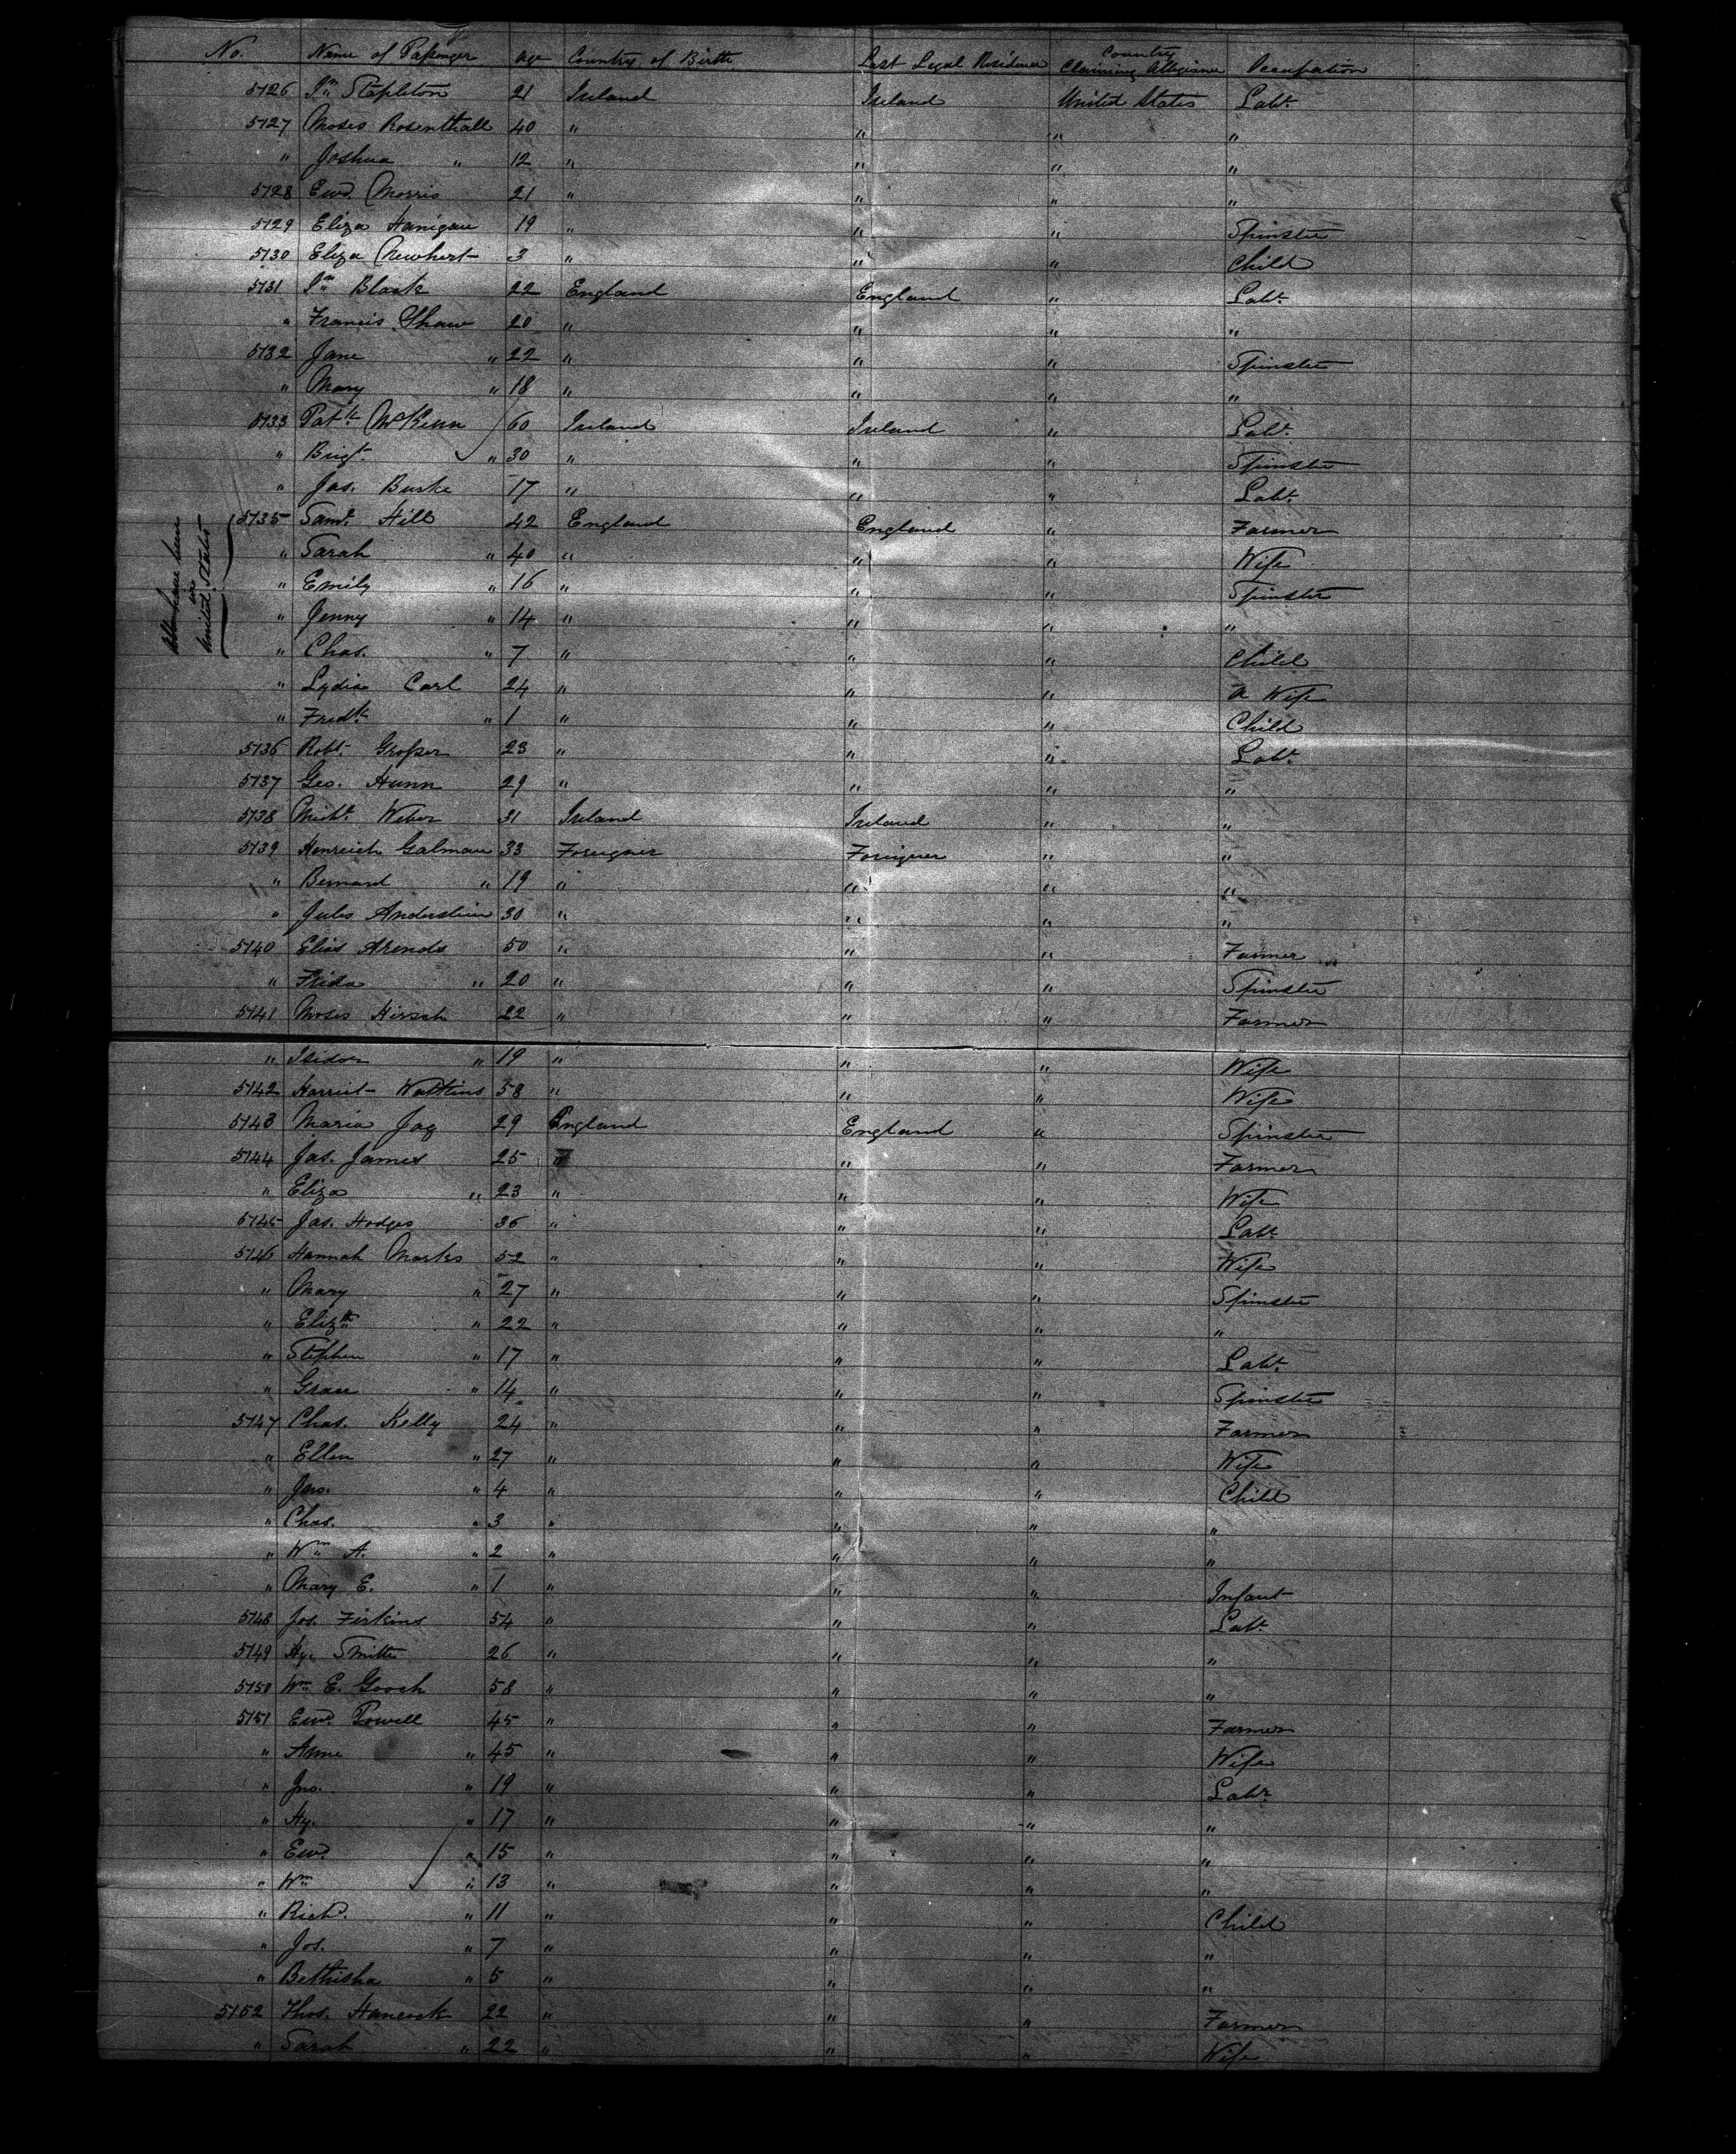 No. Name of Passenger Age Country of Birth Last Legal Residence Country Claiming Allegiance Occupation
5126 Jn Stapleton 21 Ireland Ireland United States Labr.
5127 Moses Rosenthall 40 " " " "
" Joshua " 12 " " " "
5128 Ewd. Morris 21 " " " "
5129 Eliza Hanigan 19 " " " Spinster
5130 Eliza Newhert 3 " " " Child
5131 Jn Black 22 England England " Labr.
" Francis Shaw 20 " " " "
5132 Jane " 22 " " " Spinster
" Mary " 18 " " " "
5133 Patk. McKenn 60 Ireland Ireland " Labr.
" Brigt. " 30 " " " Spinster
" Jas. Burke 17 " " " Labr.
All have been in United States
5135 Saml. Hill 42 England England " Farmer
" Sarah " 40 " " " Wife
" Emily " 16 " " " Spinster
" Jenny " 14 " " " "
" Chas. " 7 " " " Child
" Lydia Carl 24 " " " a Wife
" Fredk. " 1 " " " Child
5136 Robt. Grosser 23 " " " Labr.
5137 Geo. Hunn 29 " " " "
5138 Michl. Weber 31 Ireland Ireland " "
5139 Henreich Galman 33 Foreigner Foreigner " "
" Bernard " 19 " " " "
" Jules 30 " " " "
5140 Elias Arends 50 " " " Farmer
" Frida " 20 " " " Spinster
5141 Moses Hirsch 22 " " " Farmer
" Isidor " 19 " " " Wife
5142 Harriet Watkins 58 " " " Wife
5143 Maria Jag 29 England England " Spinster
5144 Jas. James 25 " " " Farmer
" Eliza " 23 " " " Wife
5145 Jas. Hodges 36 " " " Labr.
5146 Hannah Marks 52 " " " Wife
" Mary " 27 " " " Spinster
" Elizth " 22 " " " "
" Stephen " 17 " " " Labr.
" Grace " 14 " " " Spinster
5147 Chas. Kelly 24 " " " Farmer
" Ellen " 27 " " " Wife
" Jno. " 4 " " " Child
" Chas. " 3 " " " "
" Wm A. " 2 " " " "
" Mary E. " 1 " " " Infant
5148 Jos. Firkins 54 " " " Labr.
5149 Hy. Smith 26 " " " "
5150 Wm E. Gooch 58 " " " "
5151 Ewd. Powell 45 " " " Farmer
" Anne " 45 " " " Wife
" Jno. " 19 " " " Labr.
" Hy. " 17 " " " "
" Ewd. " 15 " " " "
" Wm " 13 " " " "
" Richd. " 11 " " " Child
" Jos. " 7 " " " "
" Bethisha " 5 " " " "
5152 Thos. Hancock 22 " " " Farmer
" Sarah " 22 " " " Wife